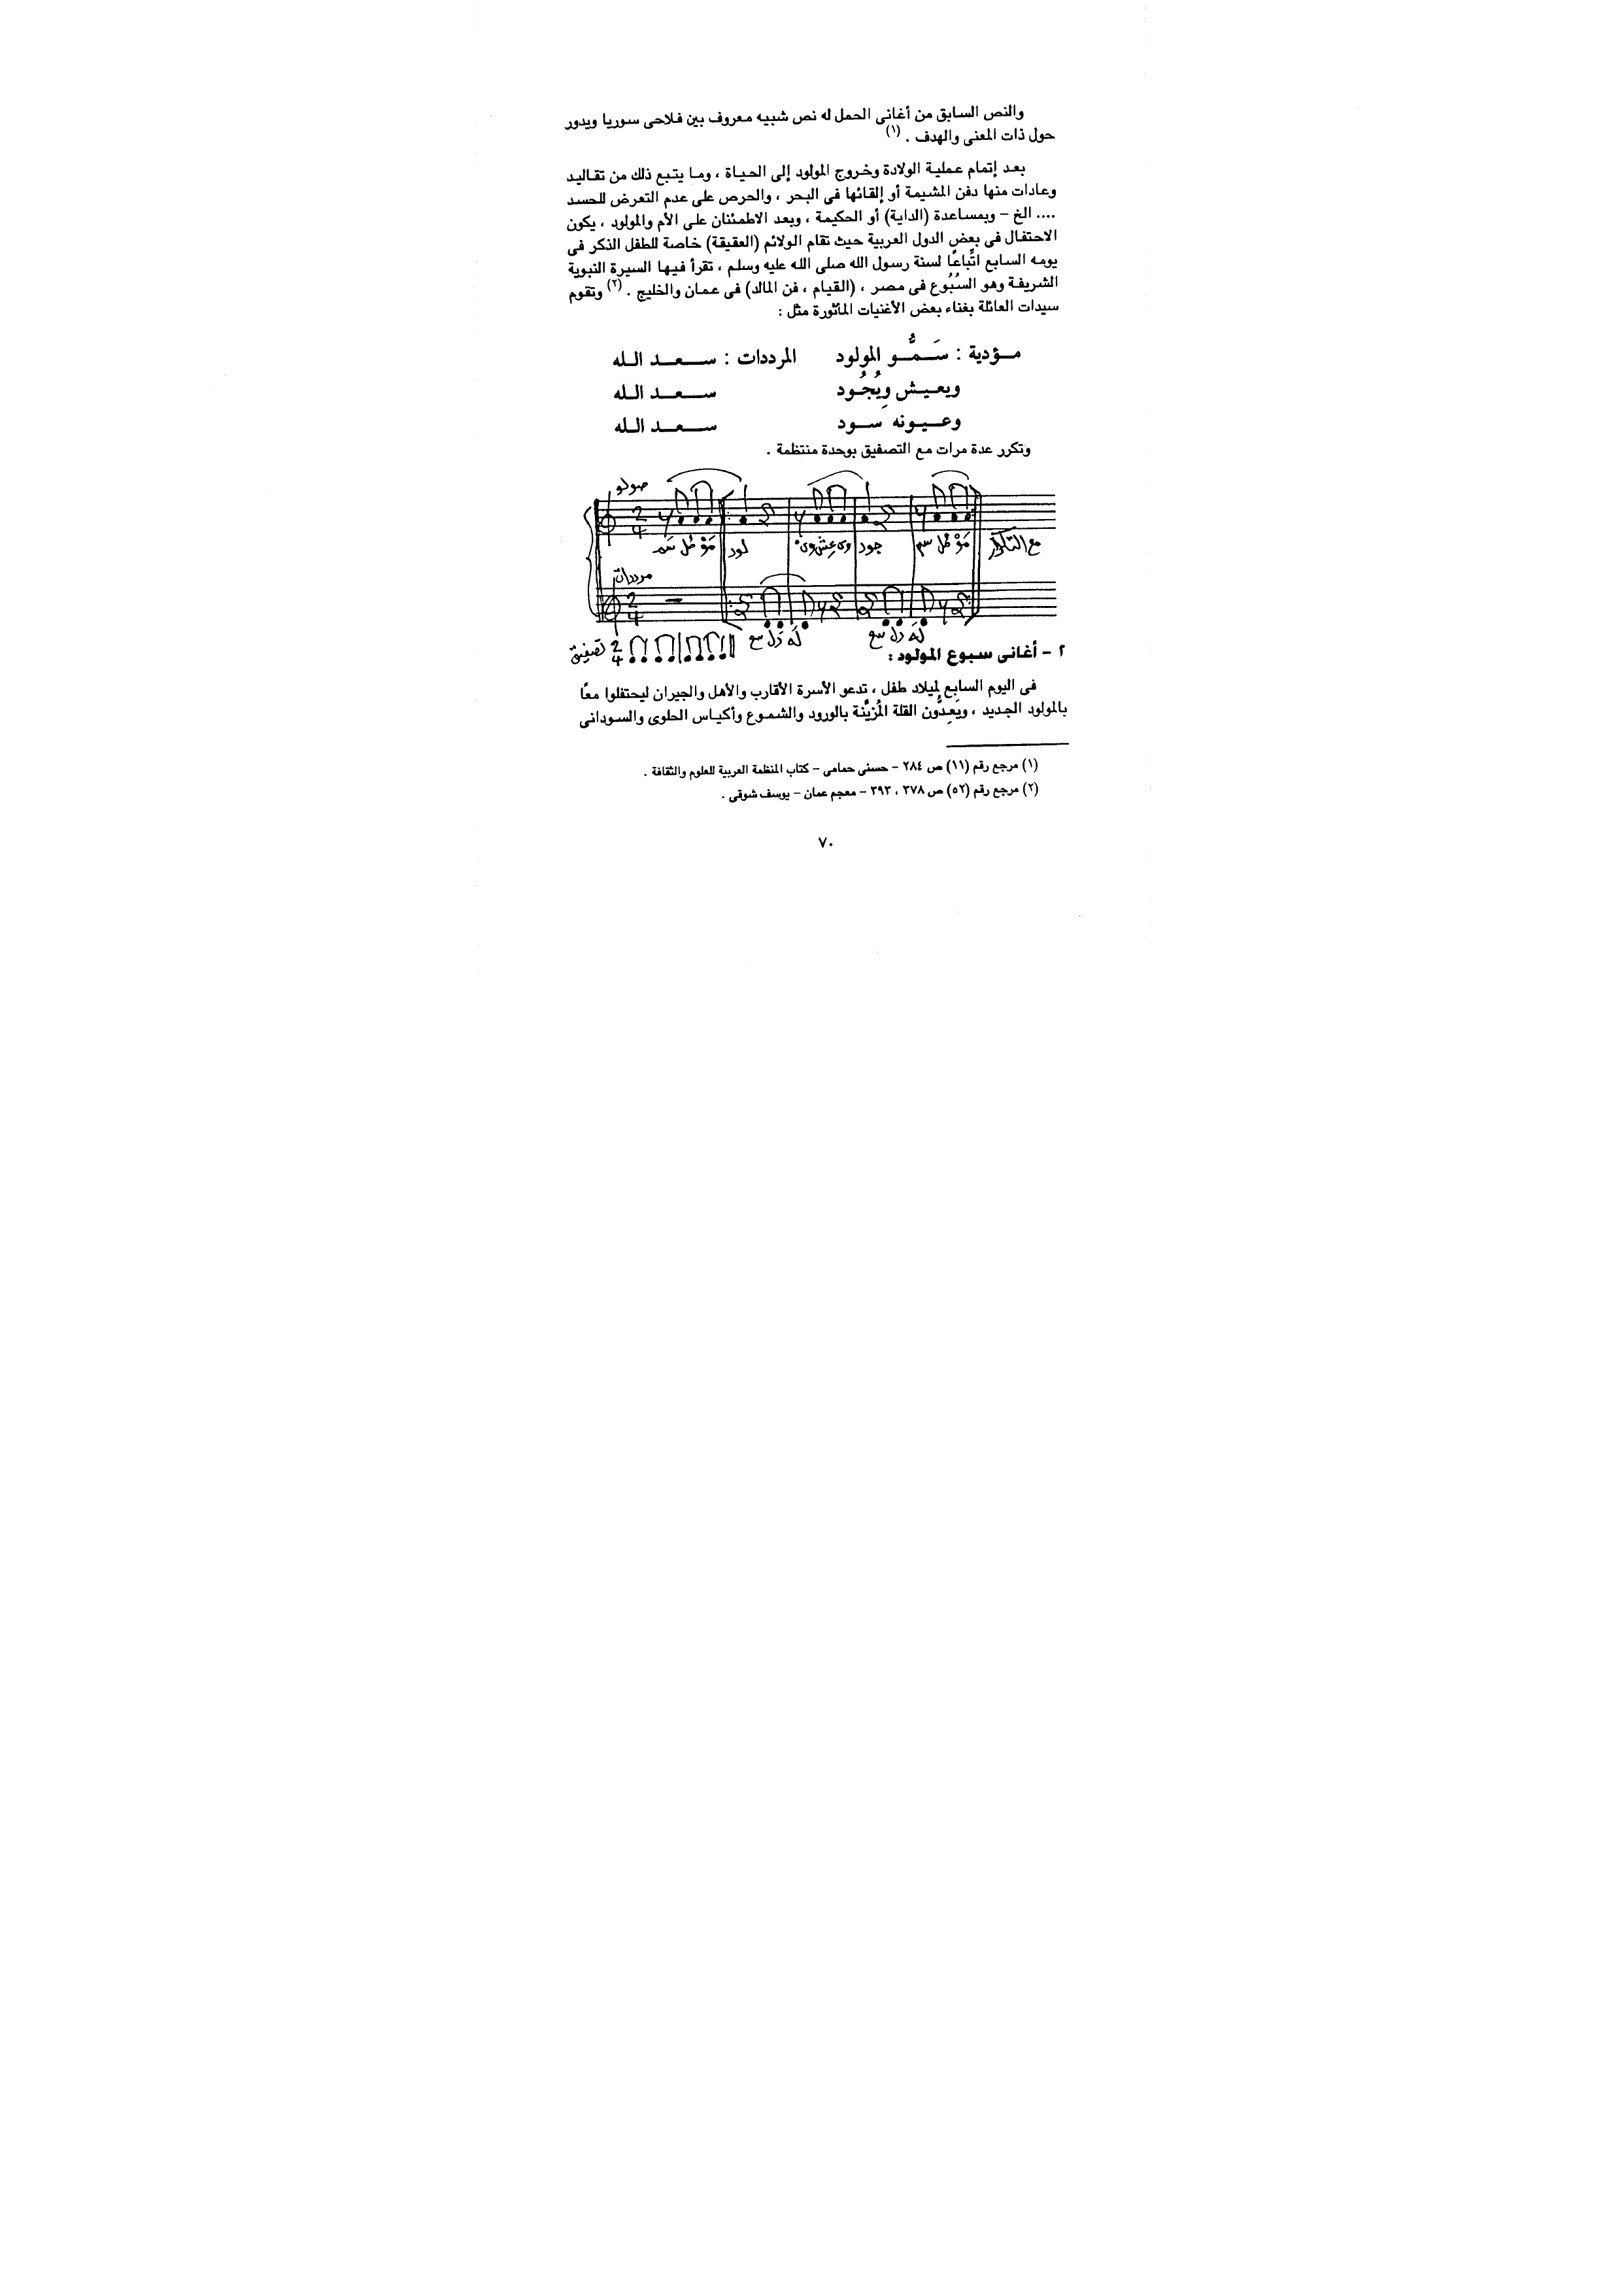 والنص السابق من أغانى الحمل له نص شبيه معروف بين فلاحى سوريا ويدور
حول ذات المعنى والهدف . (١)
بعد إتمام عملية الولادة وخروج المولود إلى الحياة ، وما يتبع ذلك من تقاليد
وعادات منها دفن المشيمة أو إلقائها فى البحر ، والحرص على عدم التعرض للحسد
.... الخ – وبمساعدة (الداية) أو الحكيمة ، وبعد الاطمئنان على الأم والمولود ، يكون
الاحتفال فى بعض الدول العربية حيث تقام الولائم (العقيقة) خاصة للطفل الذكر فى
يومه السابع اتِّباعًا لسنة رسول الله صلى الله عليه وسلم ، تقرأ فيها السيرة النبوية
الشريفة وهو السُبُوع فى مصر ، (القيام ، فن المالد) فى عمان والخليج . (٢) وتقوم
سيدات العائلة بغناء بعض الأغنيات المأثورة مثل :
مؤدية : سَمُّو المولود المرددات : سعد الله
ويعيش وِيُجُود سعد الله
وعيونه سود سعد الله
وتكرر عدة مرات مع التصفيق بوحدة منتظمة .
صولو
2 4
لود
جود
مع التكرار
مرددات
2 4
تصفيق 2 4
٢ – أغانى سبوع المولود :
فى اليوم السابع لميلاد طفل ، تدعو الأسرة الأقارب والأهل والجيران ليحتفلوا معًا
بالمولود الجديد ، ويَعِدُّون القلة المُزيَّنة بالورود والشموع وأكياس الحلوى والسودانى
(١) مرجع رقم (١١) ص ٢٨٤ – حسنى حمامى – كتاب المنظمة العربية للعلوم والثقافة .
(٢) مرجع رقم (٥٢) ص ٣٧٨ ، ٣٩٣ – معجم عمان – يوسف شوقى .
٧٠